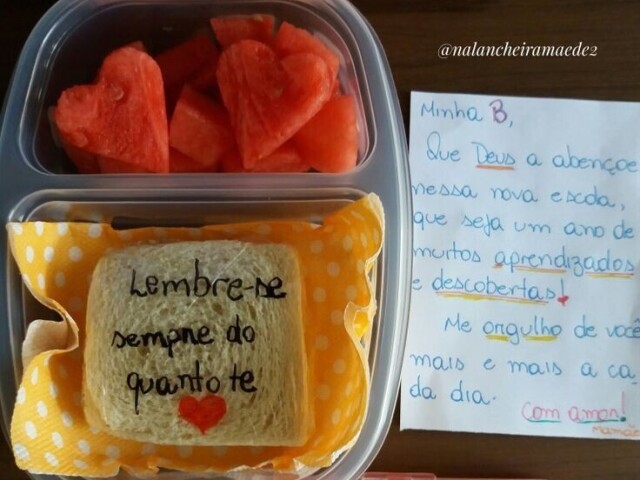 @nalancheiramaede2
Minha B,
Que Deus a abençoe
nessa nova escola,
que seja um ano de
muitos aprendizados
e descobertas!
Me orgulho de você
mais e mais a ca
da dia.
Com amor!
Mamãe
Lembre-se
sempre do
quanto te